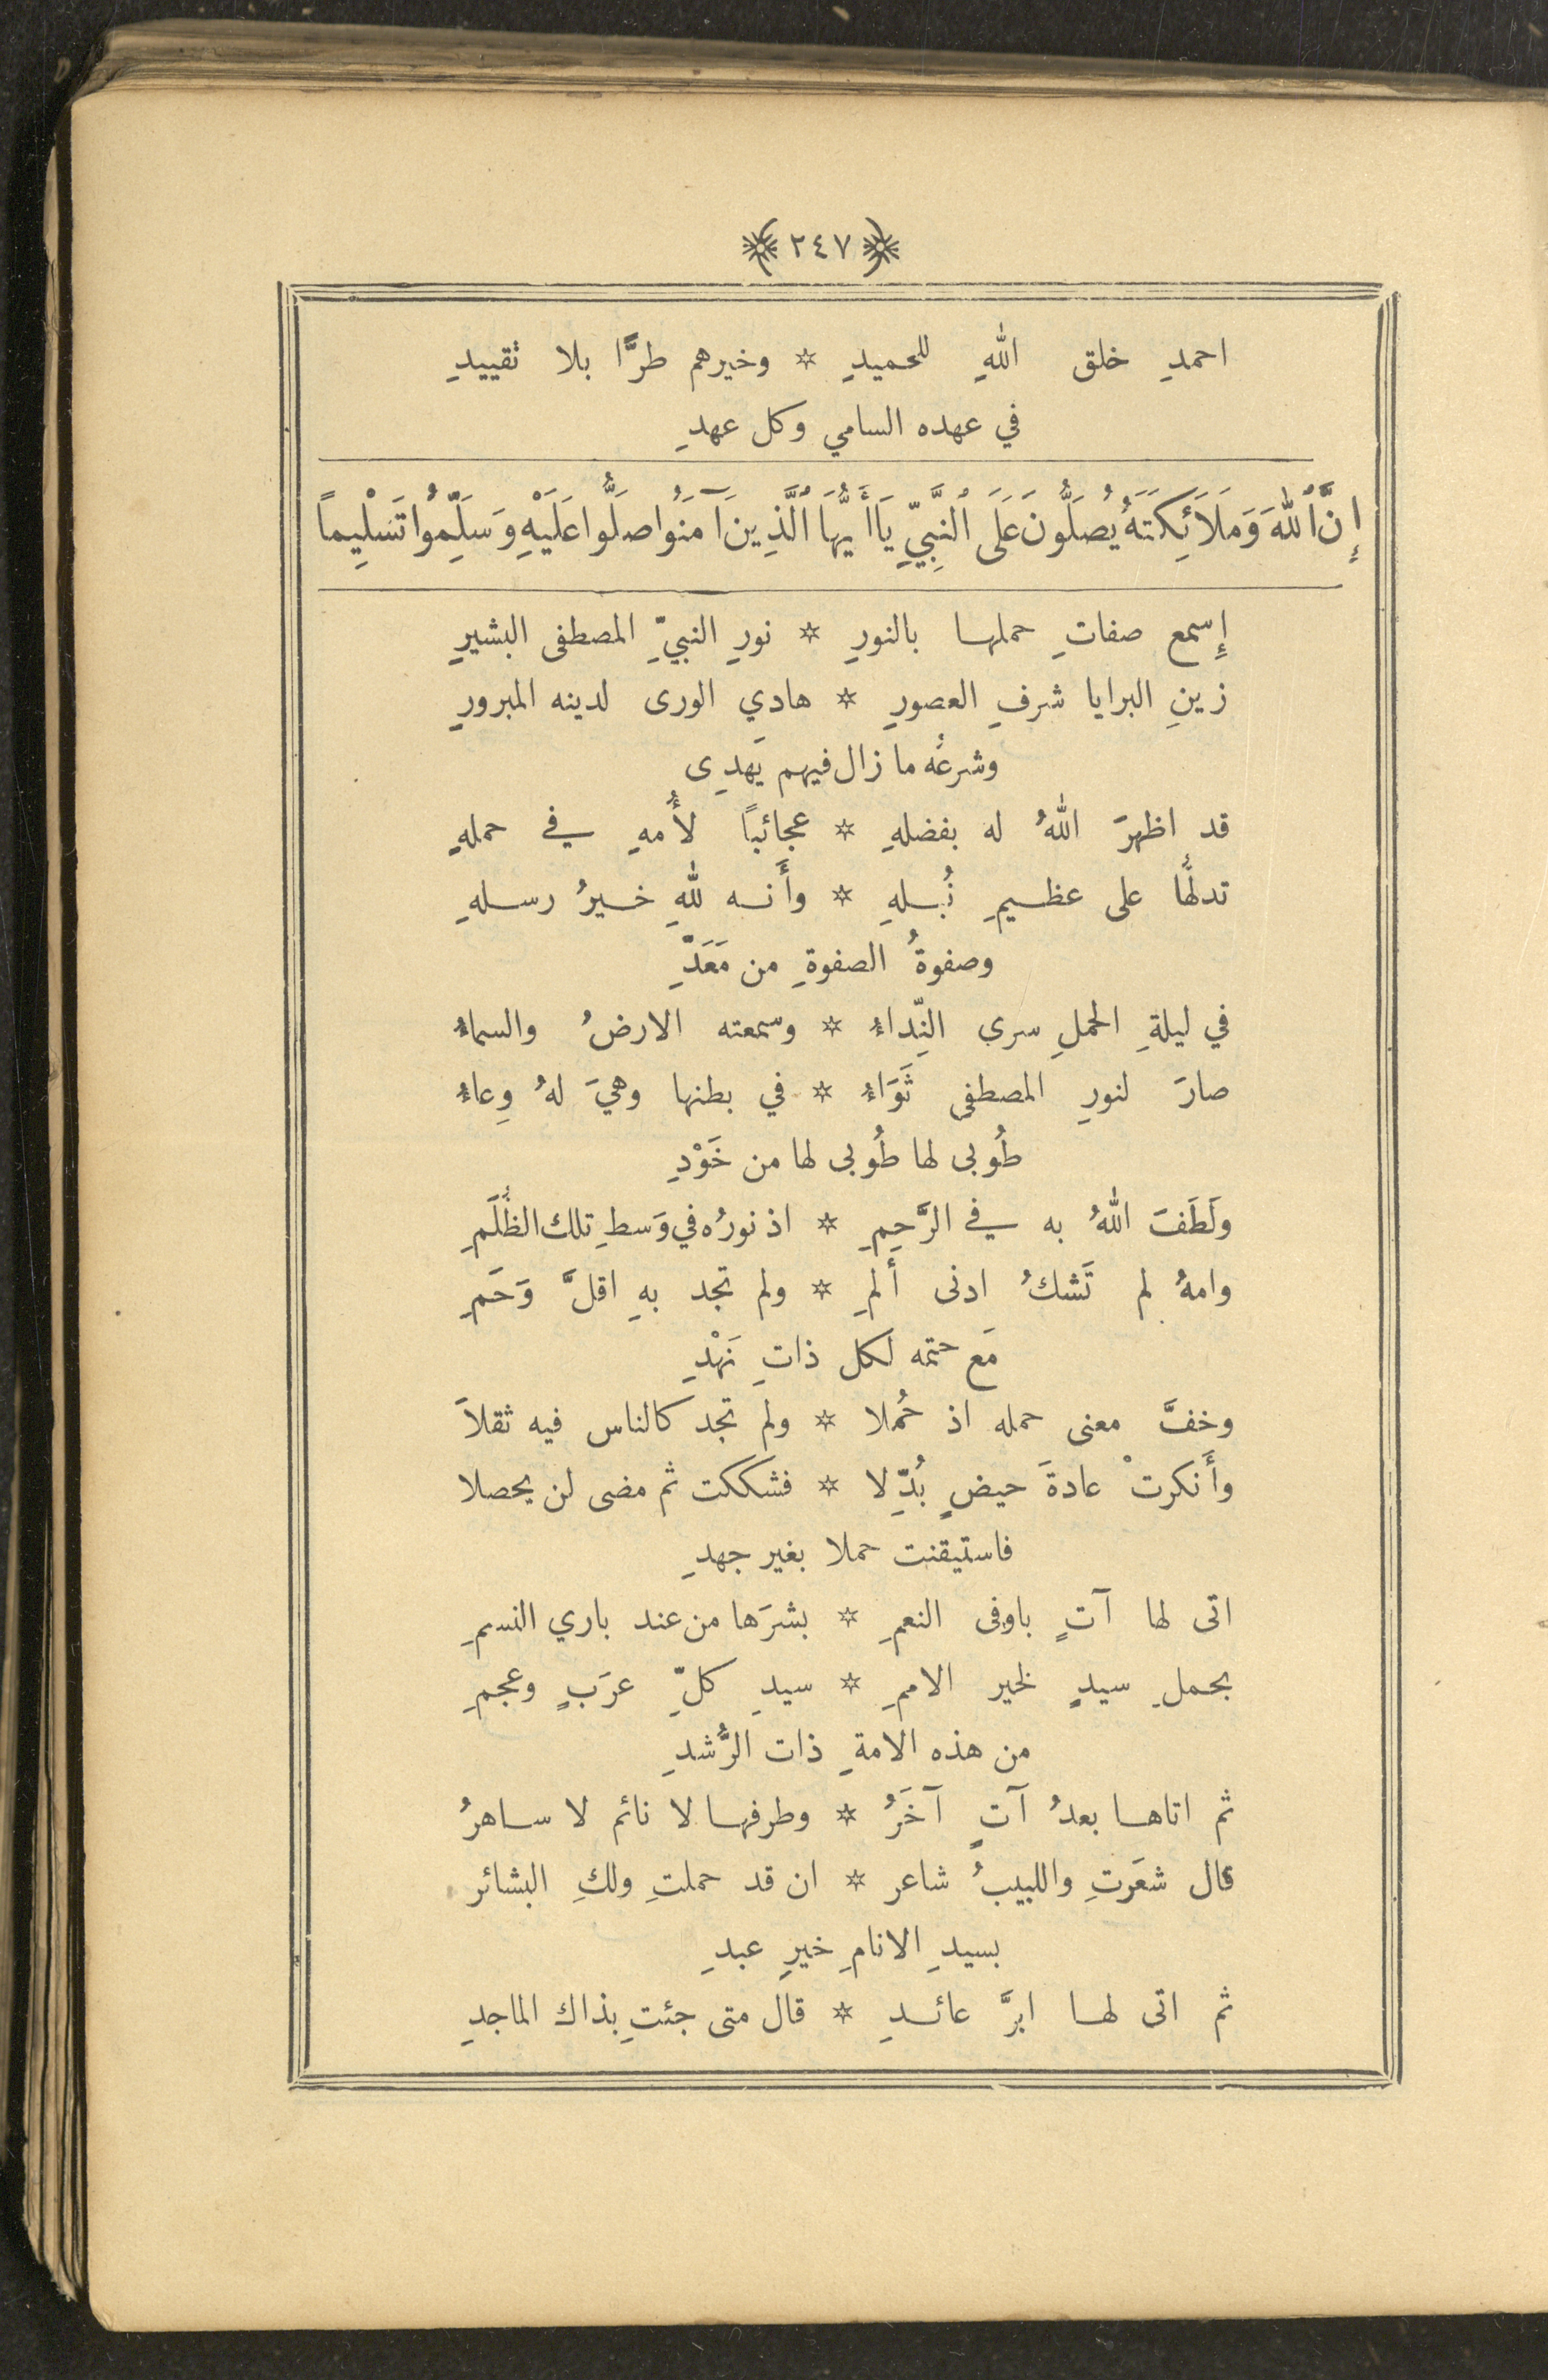 ٢٤٧
احمدِ خلق اللهِ للحميدِ * وخيرهم طرًّا بلا تقييدِ
في عهده السامي وكل عهدِ
إِنَّ ٱللهَ وَمَلَائِكَتَهُ يُصَلُّونَ عَلَى ٱلنَّبِيِّ يَاأَيُّهَا ٱلَّذِينَ آمَنُوا صَلُّوا عَلَيْهِ وَسَلِّمُوا تَسْلِيماً
إِسمع صفاتِ حملها بالنورِ * نورِ النبيِّ المصطفى البشيرِ
زينِ البرايا شرفِ العصورِ * هادي الورى لدينه المبرورِ
وشرعُه ما زال فيهم يَهدِى
قد اظهرَ اللهُ له بفضلهِ * عجائباً لأُمهِ في حملهِ
تدلُّها على عظيمِ نُبلهِ * وأَنه للهِ خيرُ رسلهِ
وصفوةُ الصفوةِ من مَعَدِّ
في ليلةِ الحملِ سرى النِّداءُ * وسمعته الارضُ والسماءُ
صارَ لنورِ المصطفى ثَوَاءُ * في بطنها وهيَ لهُ وِعاءُ
طُوبى لها طُوبى لها من خَوْدِ
ولَطَفَ اللهُ به في الرَّحِمِ * اذ نورُه في وَسطِ تلك الظُّلَمِ
وامهُ لم تَشكُ ادنى أَلمِ * ولم تجد بهِ اقلَّ وَحَمِ
مَع حتمه لكل ذاتِ نَهْدِ
وخفَّ معنى حمله اذ حُملا * ولم تجد كالناس فيه ثقلاَ
وأَنكرتْ عادةَ حيضٍ بُدِّلا * فشككت ثم مضى لن يحصلا
فاستيقنت حملا بغير جهدِ
اتى لها آتٍ باوفى النعمِ * بشرَها من عند باري النسمِ
بحملِ سيدٍ لخير الاممِ * سيدِ كلِّ عرَبٍ وعجمِ
من هذه الامةِ ذات الرُّشدِ
ثم اتاها بعدُ آتٍ آخَرُ * وطرفها لا نائم لا ساهرُ
قال شعَرتِ واللبيبُ شاعر * ان قد حملتِ ولكِ البشائر
بسيدِ الانامِ خيرِ عبدِ
ثم اتى لها ابرَّ عائدِ * قال متى جئتِ بذاك الماجدِ